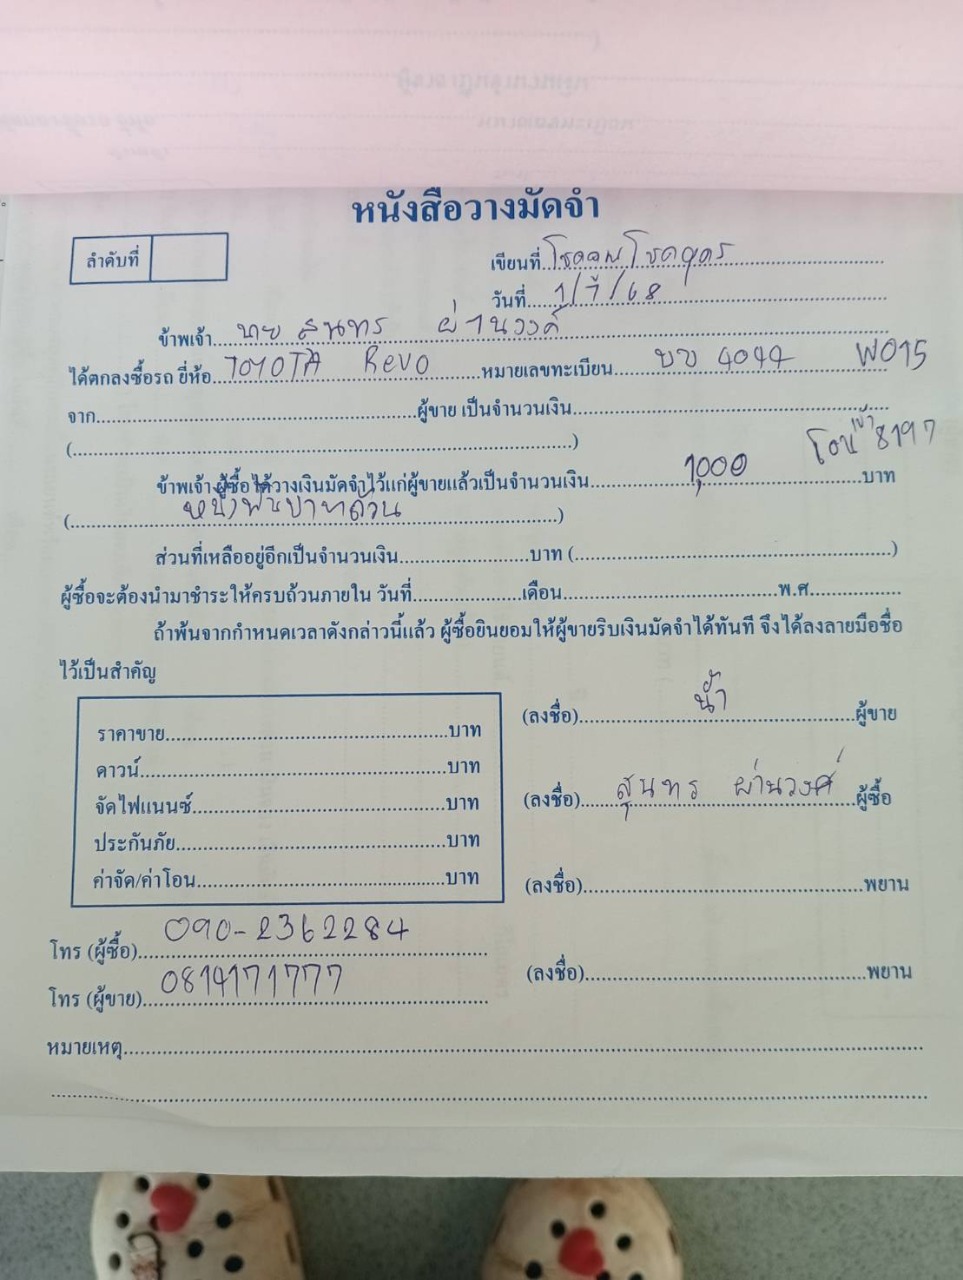 หนังสือวางมัดจำ
ลำดับที่
เขียนที่ โชคอนุโชคอุดร
วันที่ 1/7/68
ข้าพเจ้า นาย สุนทร ผ่านวงค์
ได้ตกลงซื้อรถ ยี่ห้อ TOYOTA Revo หมายเลขทะเบียน ยข 4044 W015
จาก ผู้ขาย เป็นจำนวนเงิน
( )
โอนเข้า 8197
ข้าพเจ้า ผู้ซื้อได้วางเงินมัดจำไว้แก่ผู้ขายแล้วเป็นจำนวนเงิน 1,000 บาท
( หนึ่งพันบาทถ้วน )
ส่วนที่เหลืออยู่อีกเป็นจำนวนเงิน บาท ( )
ผู้ซื้อจะต้องนำมาชำระให้ครบถ้วนภายใน วันที่ เดือน พ.ศ.
ถ้าพ้นจากกำหนดเวลาดังกล่าวนี้แล้ว ผู้ซื้อยินยอมให้ผู้ขายริบเงินมัดจำได้ทันที จึงได้ลงลายมือชื่อ
ไว้เป็นสำคัญ
ราคาขาย บาท
ดาวน์ บาท
จัดไฟแนนซ์ บาท
ประกันภัย บาท
ค่าจัด/ค่าโอน บาท
(ลงชื่อ) น้ำ ผู้ขาย
(ลงชื่อ) สุนทร ผ่านวงศ์ ผู้ซื้อ
(ลงชื่อ) พยาน
(ลงชื่อ) พยาน
โทร (ผู้ซื้อ) 090-2362284
โทร (ผู้ขาย) 0814171777
หมายเหตุ